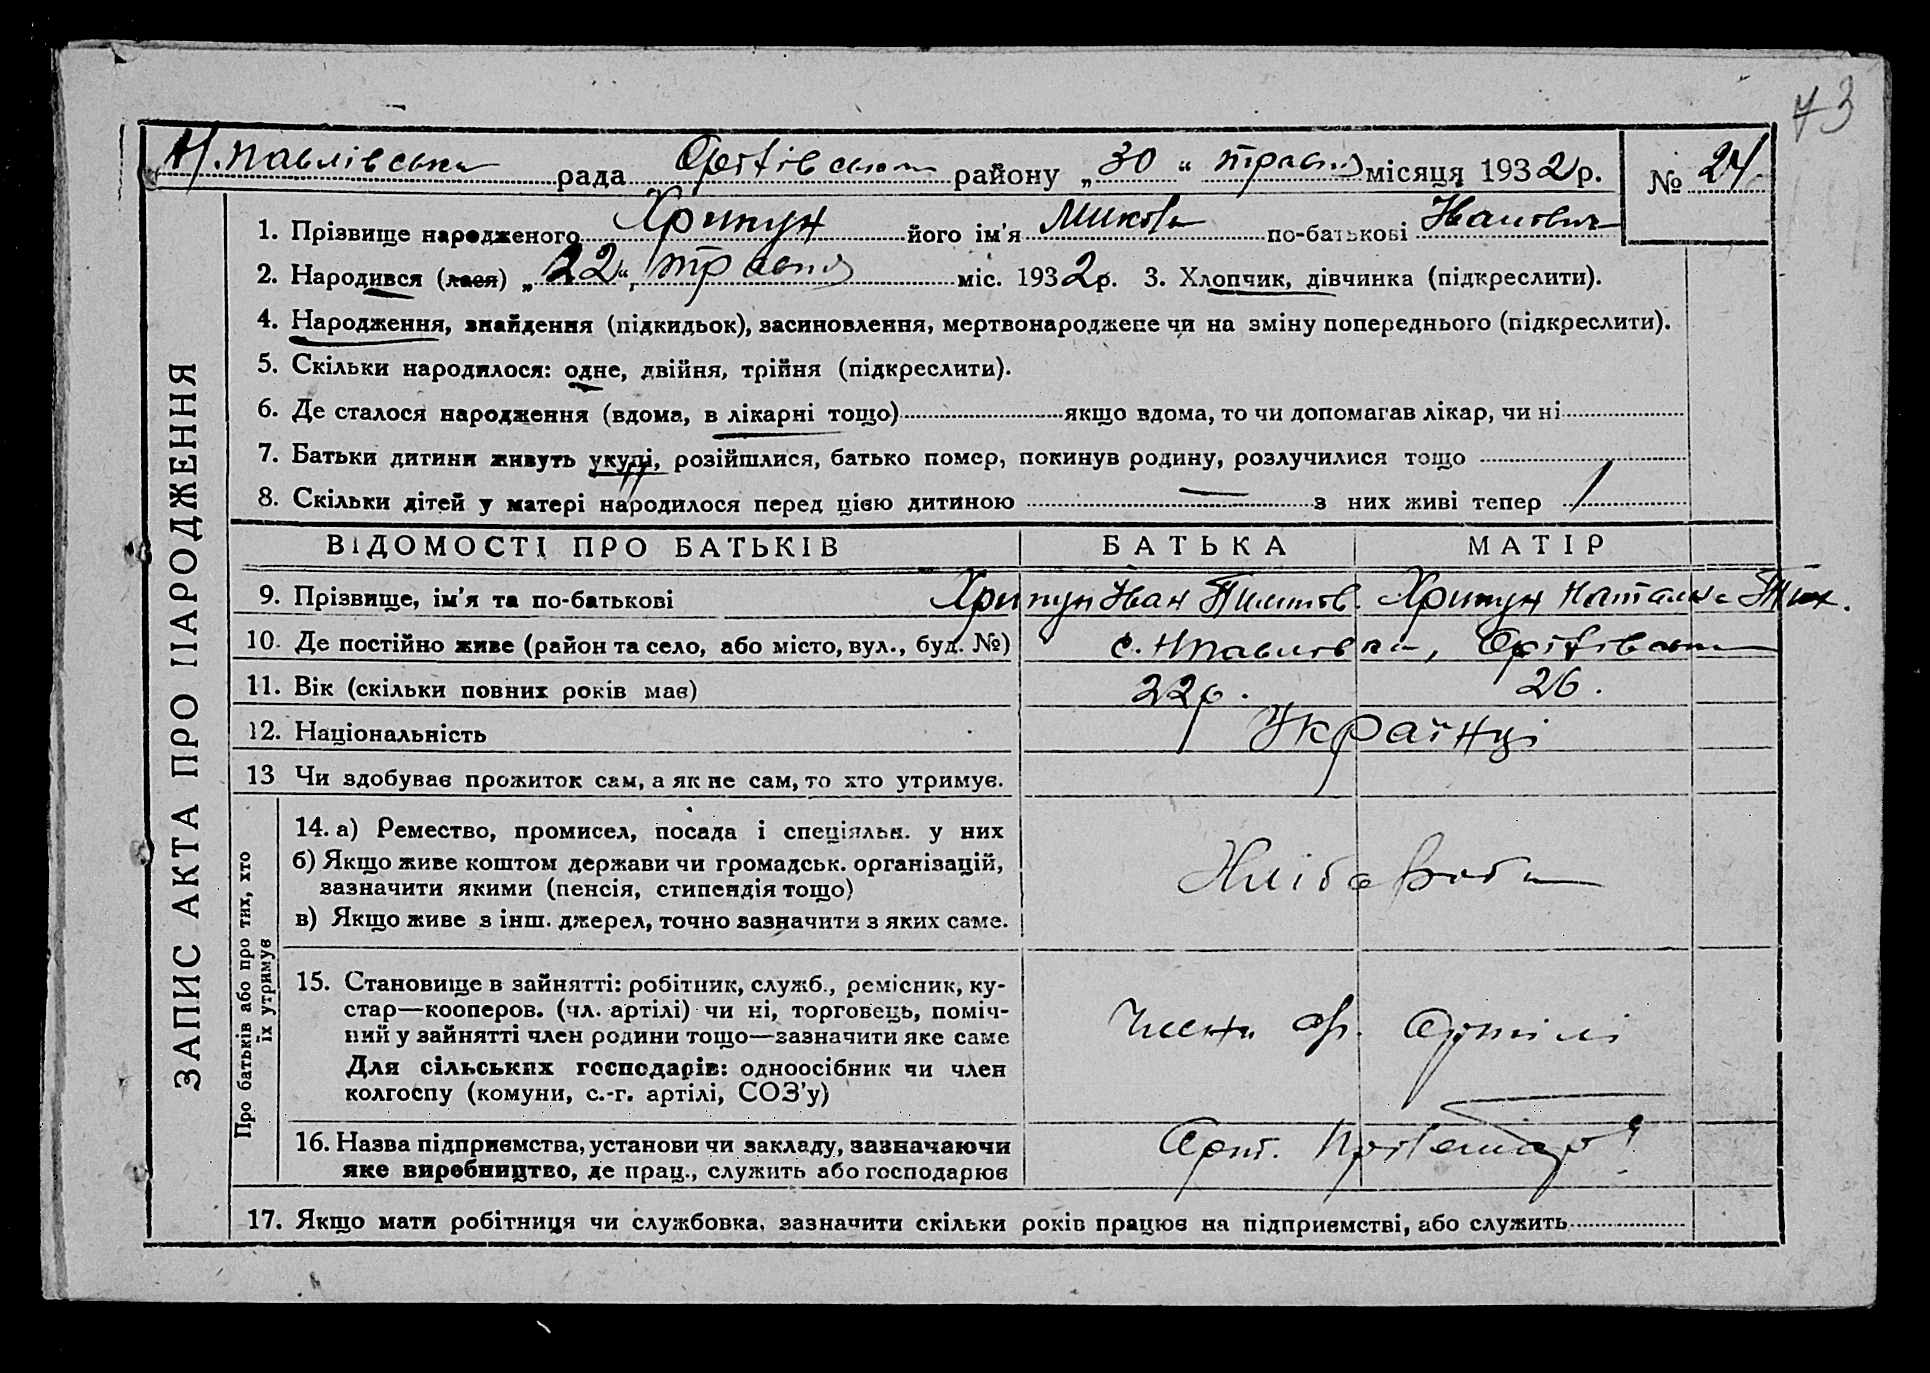 73
Н.Павлівська рада Оріхівського району „30“ травня місяця 1932 р. № 24
1. Прізвище народженого Хрипун його ім'я Микола по-батькові Іванович
2. Народився (лася) „22“ травня міс. 1932 р. 3. Хлопчик, дівчинка (підкреслити).
4. Народження, знайдення (підкидьок), засиновлення, мертвонароджене чи на зміну попереднього (підкреслити).
5. Скільки народилося: одне, двійня, трійня (підкреслити).
6. Де сталося народження (вдома, в лікарні тощо) якщо вдома, то чи допомагав лікар, чи ні
7. Батьки дитини живуть укупі, розійшлися, батько помер, покинув родину, розлучилися тощо
8. Скільки дітей у матері народилося перед цією дитиною — з них живі тепер 1
ЗАПИС АКТА ПРО НАРОДЖЕННЯ
ВІДОМОСТІ ПРО БАТЬКІВ БАТЬКА МАТІР
9. Прізвище, ім'я та по-батькові Хрипун Іван Хрипун Наталка Тих.
10. Де постійно живе (район та село, або місто, вул., буд. №) с. Нпавловка,
11. Вік (скільки повних років має) 22р. 26.
12. Національність Українці
13 Чи здобуває прожиток сам, а як не сам, то хто утримує.
Про батьків або про тих, хто
їх утримує
14. а) Ремество, промисел, посада і спеціяльн. у них
б) Якщо живе коштом держави чи громадськ. організацій,
зазначити якими (пенсія, стипендія тощо)
в) Якщо живе з інш. джерел, точно зазначити з яких саме.
Хліборобы
15. Становище в зайнятті: робітник, служб., ремісник, ку-
стар—кооперов. (чл. артілі) чи ні, торговець, поміч-
ний у зайнятті член родини тощо—зазначити яке саме
Для сільських господарів: одноосібник чи член
колгоспу (комуни, с.-г. артілі, СОЗ'у)
Члени артілі
16. Назва підприємства, установи чи закладу, зазначаючи
яке виробництво, де прац., служить або господарює
Арт.
17. Якщо мати робітниця чи службовка, зазначити скільки років працює на підприємстві, або служить